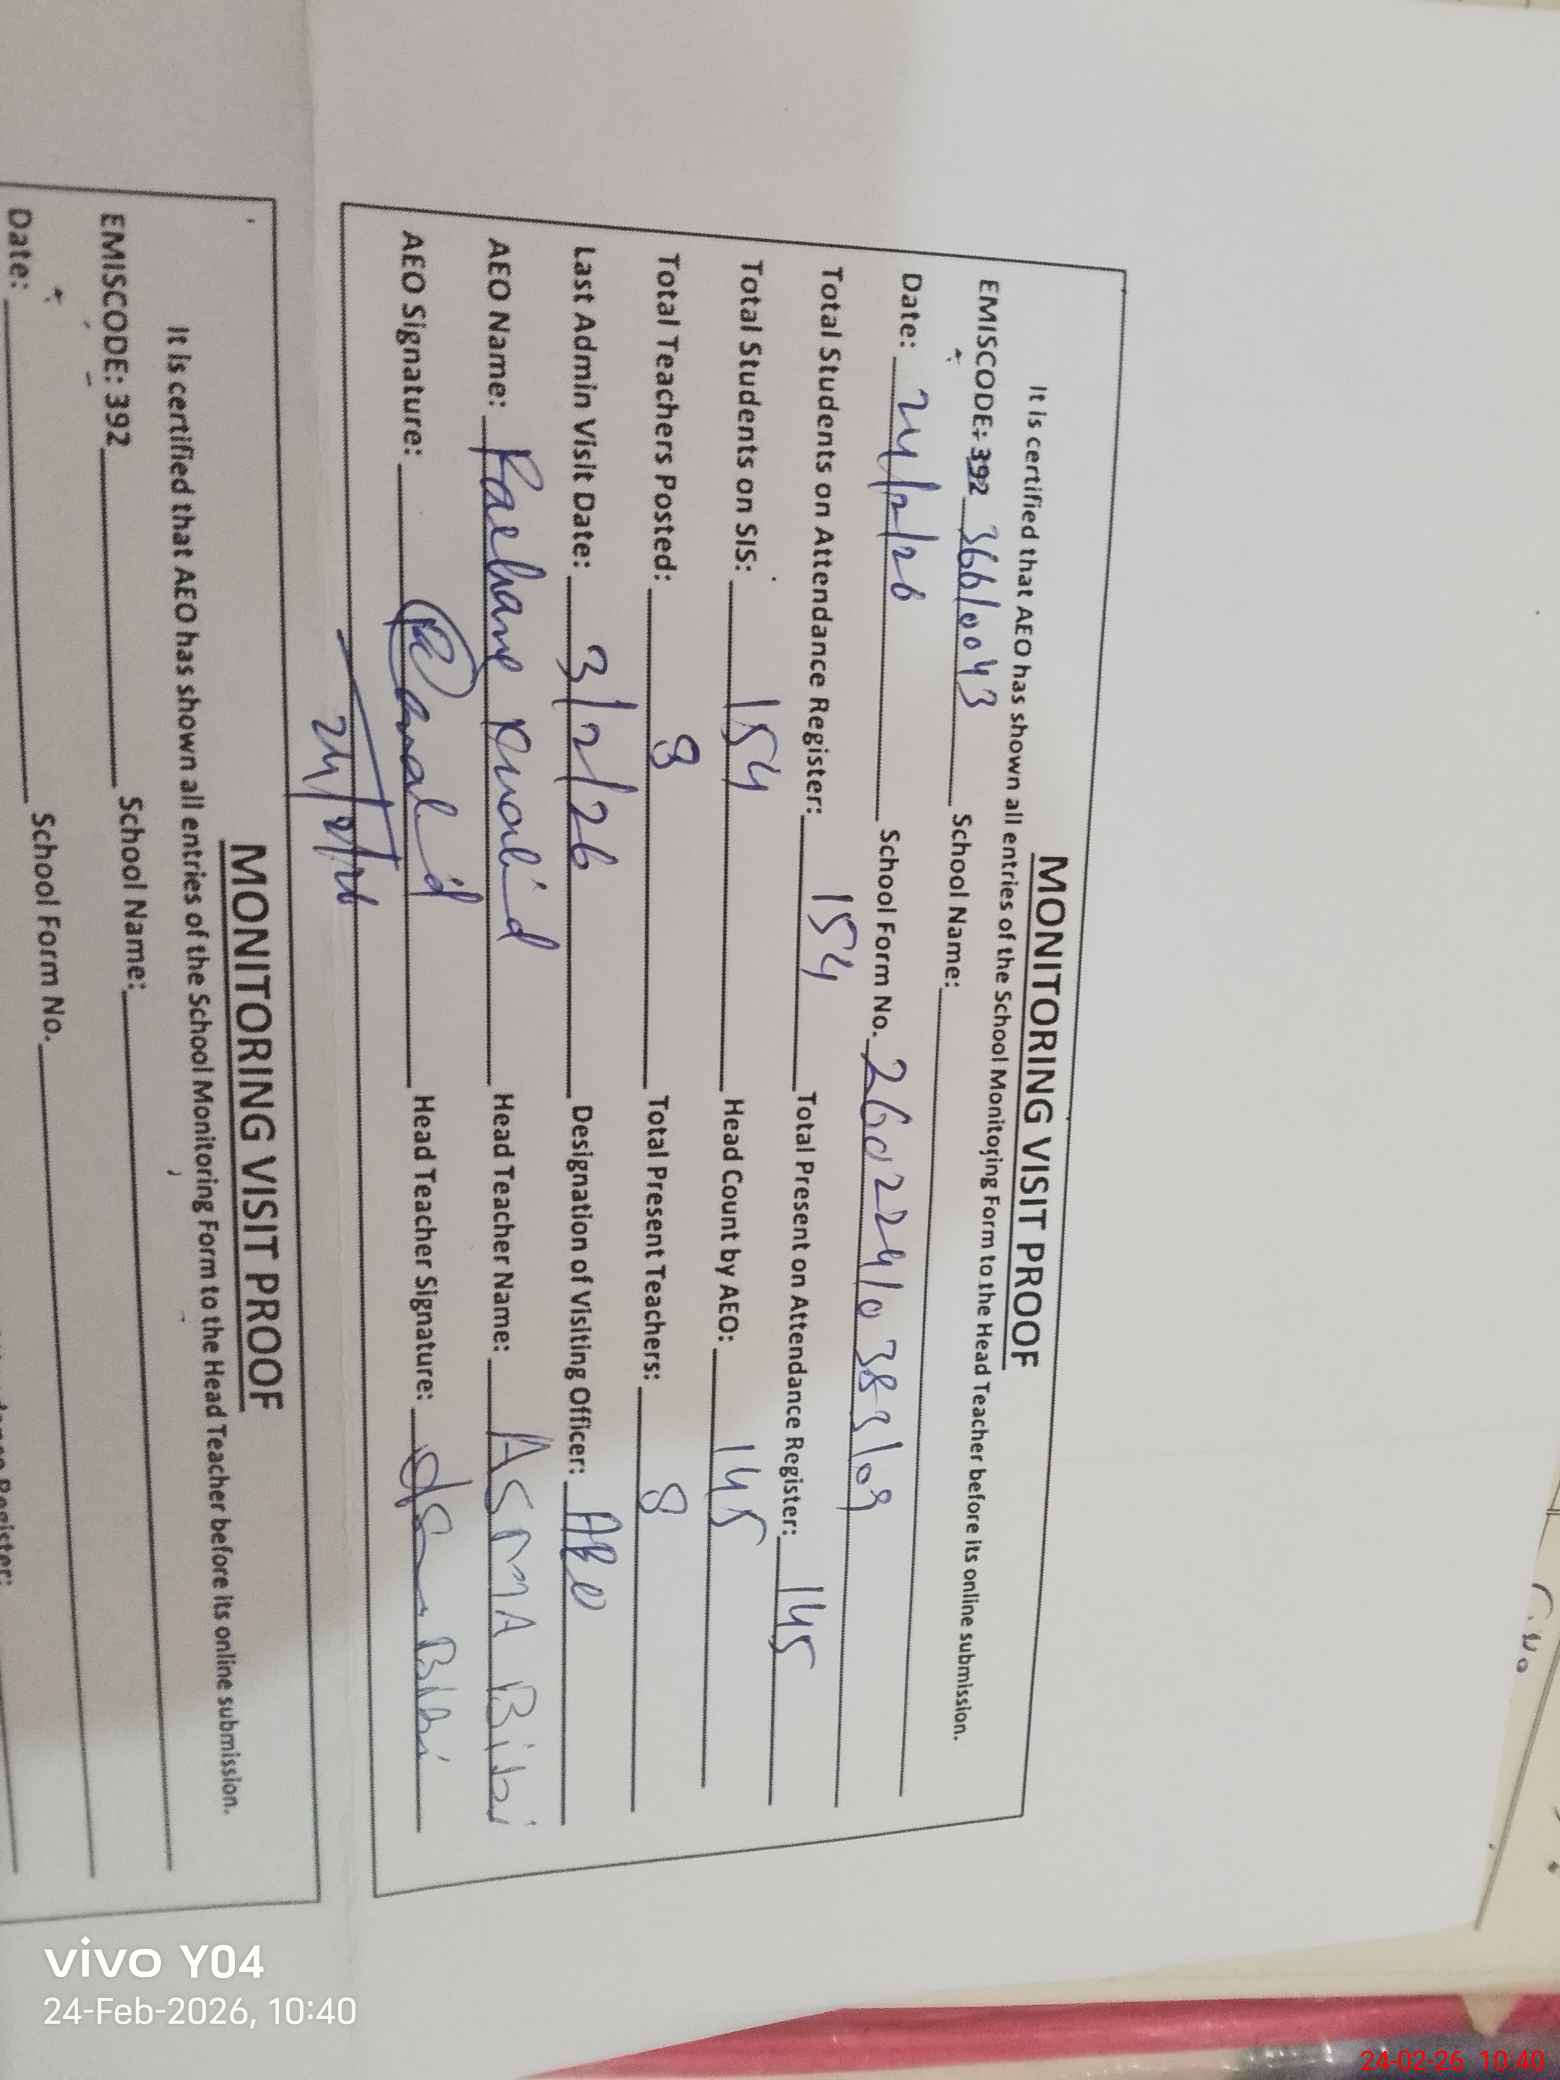 MONITORING VISIT PROOF
It is certified that AEO has shown all entries of the School Monitoring Form to the Head Teacher before its online submission.
EMISCODE: 392 36610043 School Name:
Date: 24/2/26 School Form No. 26022410383109
Total Students on Attendance Register: 154 Total Present on Attendance Register: 145
Total Students on SIS: 154 Head Count by AEO: 145
Total Teachers Posted: 8 Total Present Teachers: 8
Last Admin Visit Date: 3/2/26 Designation of Visiting Officer: AEO
AEO Name: Head Teacher Name: ASMA Bibi
AEO Signature: Head Teacher Signature: Bibi
24/2/26
MONITORING VISIT PROOF
It is certified that AEO has shown all entries of the School Monitoring Form to the Head Teacher before its online submission.
EMISCODE: 392 School Name:
Date: School Form No.
Register:
vivo Y04
24-Feb-2026, 10:40
24-02-26 10:40